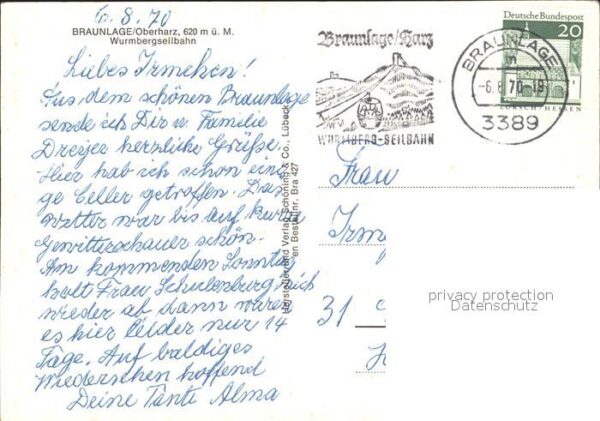 6.8.70
BRAUNLAGE/Oberharz, 620 m ü. M.
Wurmbergseilbahn
Liebes Irmchen!
Aus dem schönen Braunlage
sende ich Dir u. Familie
Dreyer herzliche Grüße.
Hier hab ich schon eini-
ge Celler getroffen. Das
Wetter war bis auf kurze
Gewitterschauer schön.
Am kommenden Sonntag
holt Frau Schulenburg mich
wieder ab dann waren
es hier leider nur 14
Tage. Auf baldiges
Wiedersehen hoffend
Deine Tante Alma
Hersteller und Verlag Schöning & Co., Lübeck
en Bestellnr. Bra 427
Braunlage/Harz
WURMBERG-SEILBAHN
BRAUNLAGE
-6.8.70-18
3389
Deutsche Bundespost
20
Frau
Irm
31
privacy protection
Datenschutz